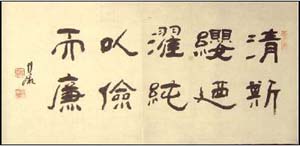 清斯
纓迺
濯純
以儉
而廉